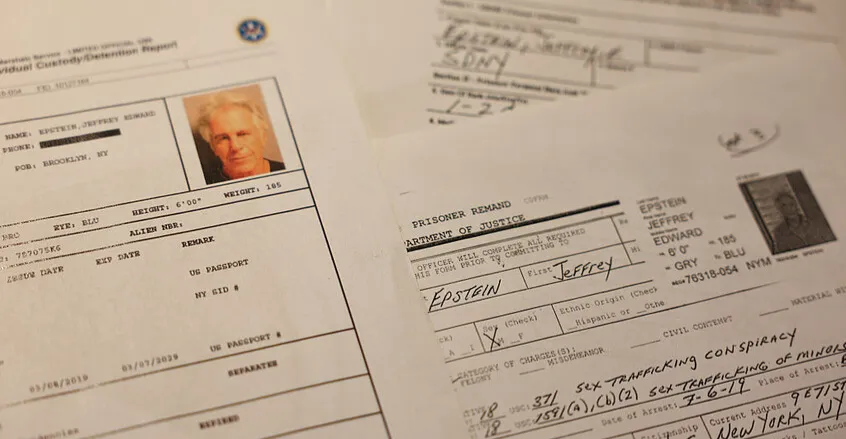 LIMITED OFFICIAL USE
vidual Custody/Detention Report
NAME: EPSTEIN, JEFFREY EDWARD
PHONE:
POB: BROOKLYN, NY
EYE: BLU
HEIGHT: 6'00"
WEIGHT: 185
ALIEN NBR:
EXP DATE
REMARK
US PASSPORT
NY SID #
US PASSPORT #
03/07/2029
SEPARATEE
EXPIRED
EPSTEIN, JEFFREY
SDNY
PRISONER REMAND
PARTMENT OF JUSTICE
OFFICER WILL COMPLETE ALL REQUIRED
HIS FORM PRIOR TO COMMITTING TO
EPSTEIN
First
Jeffrey
MI
EPSTEIN
JEFFREY
EDWARD
6' 0" 185
GRY BLU
76318-054 NYM
Sex (Check)
X M F
Ethnic Origin (Check)
Hispanic or Othe
CATEGORY OF CHARGES(S):
FELONY
MISDEMEANOR
CIVIL CONTEMPT
MATERIAL WI
18 USC: 371 SEX TRAFFICKING CONSPIRACY
18 1591(a),(b)(2) SEX TRAFFICKING OF MINORS
Date of Arrest: 7-6-19
Place of Arrest:
Current Address 9 E 71 ST
NEW YORK, NY